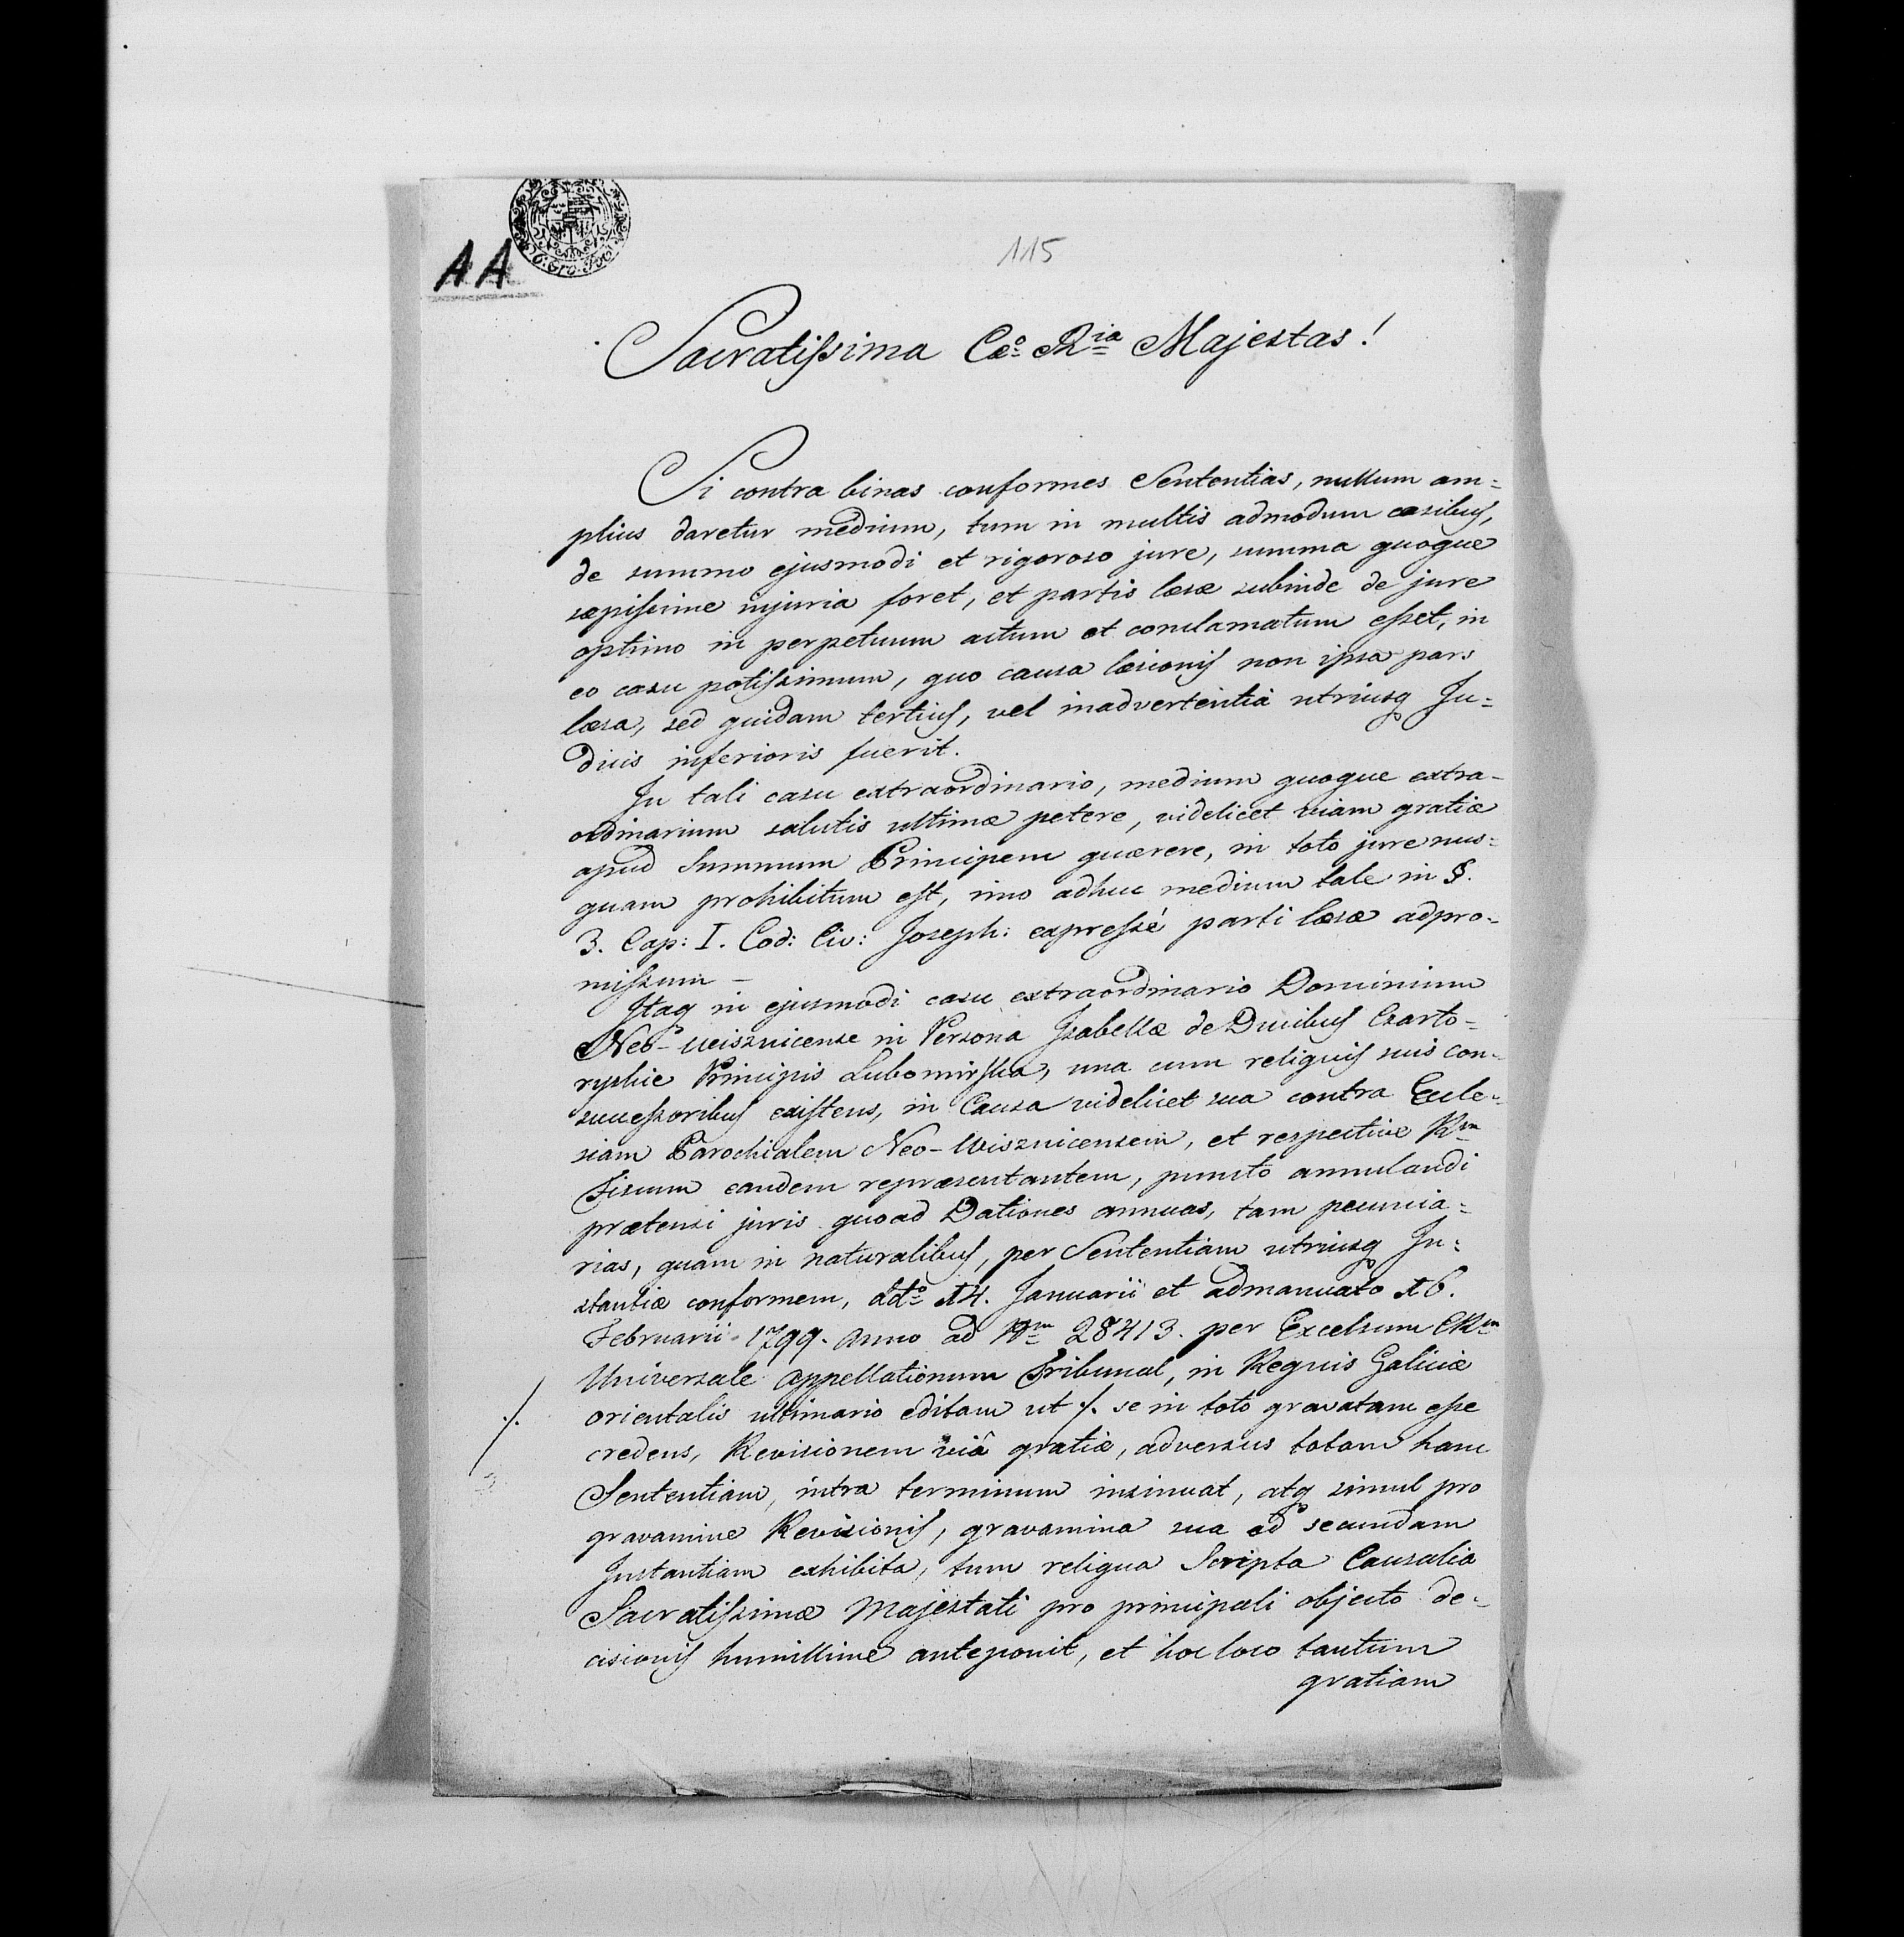 AA
115
Sacratissima Cæo Ria Majestas!
Si contra binas conformes Sententias, nullum am=
plius daretur medium, tum in multis admodum casibus,
de summo ejusmodi et rigoroso jure, summa quoque
sæpissime injuria foret, et partis læsæ subinde de jure
optimo in perpetuum actum et conclamatum esset, in
eo casu potissimum, quo causa læsionis non ipsa pars
læsa, sed quidam tertius, vel inadvertentia utriusq Ju=
dicis inferioris fuerit.
In tali casu extraordinario, medium quoque extra-
ordinarium salutis ultimæ petere, videlicet viam gratiæ
apud Summum Principem quærere, in toto jure nus=
quam prohibitum est, imo adhuc medium tale in §.
3. Cap: I. Cod: Civ: Joseph: expressé parti læsæ adpro-
missum –
Itaq in ejusmodi casu extraordinario Dominium
Neo-Wisznicense in Persona Isabellæ de Ducibus Czarto-
ryskie Principis Lubomirska, una cum reliquis suis con-
successoribus existens, in Causa videlicet sua contra Eccle-
siam Parochialem Neo-Wisznicensem, et respective Rm
Fiscum eandem repræsentantem, puncto annulandi
prætensi juris quoad Dationes annuas, tam pecunia=
rias, quam in naturalibus, per Sententiam utriusq In=
stantiæ conformem, ddto 14. Januarii et admanuato 16.
Februarii 1799. anno ad Nrm 28413. per Excelsum CRum
Universale Appellationum Tribunal, in Regnis Galiciæ
orientalis ultimario editam ut ./. se in toto gravatam esse
./.
credens, Revisionem viâ gratiæ, adversus totam hanc
Sententiam, intra terminum insinuat, atq simul pro
gravamine Revisionis, gravamina sua ad secundam
Instantiam exhibita, tum reliqua Scripta Causalia
Sacratissimæ Majestati pro principali objecto de-
cisionis humillime anteponit, et hoc loco tantum
gratiam